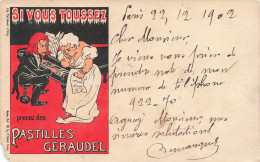 SI VOUS TOUSSEZ
prenez des
PASTILLES
GÉRAUDEL
Paris 22, 12, 1902
Cher Monsieur
Je viens vous prier de
prendre note de mon
numéro de téléphone
922-70
Agréez Monsieur mes
sincères salutations